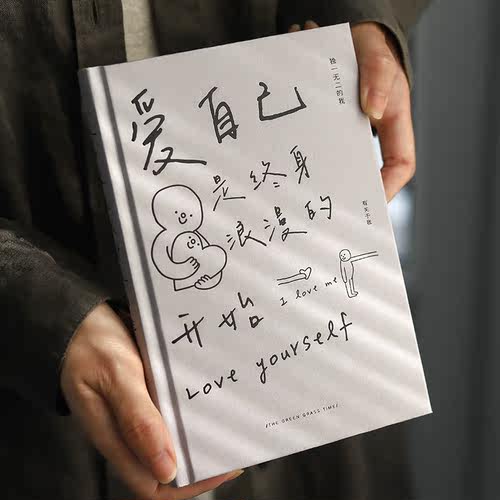 爱自己
是终身
浪漫的
开始
I love me
Love yourself
独一无二的我
THE GREEN GRASS TIME